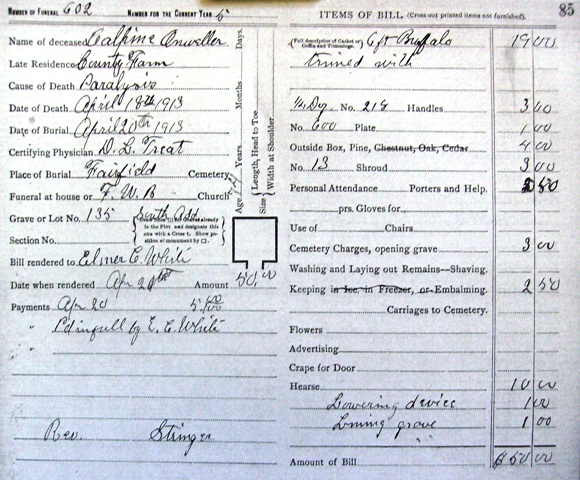 NUMBER OF FUNERAL 602 NUMBER FOR THE CURRENT YEAR 5
Name of deceased Calpine Onweller
Late Residence County Farm
Cause of Death Paralysis
Date of Death April 18th 1913
Date of Burial April 20th 1913
Certifying Physician D. L. Treat
Place of Burial Fairfield Cemetery
Funeral at house or F. W. B Church
Grave or Lot No. 135 South Add
Section No.
already
in the Plot and designate this
one with a Cross †. Show po-
sition of monument by □.
Bill rendered to Elmer E. White
Date when rendered Apr 20th Amount 50.00
Payments Apr 20 5.00
" Pd in full by E. E. White
"
Rev. Stinger
Age Years Months Days.
Size Length, Head to Toe
Width at Shoulder
ITEMS OF BILL (Cross out printed items not furnished). 85
(Full description of Casket or Coffin and Trimmings.) 6ft Buffalo 19 00
trimed with
1/4 Dz No. 218 Handles 3 00
No. 600 Plate 1 00
Outside Box, Pine, Chestnut, Oak, Cedar 4 00
No. 13 Shroud 3 00
Personal Attendance Porters and Help. 2 50
prs. Gloves for
Use of Chairs
Cemetery Charges, opening grave 3 00
Washing and Laying out Remains—Shaving.
Keeping in Ice, in Freezer, or Embalming. 2 50
Carriages to Cemetery.
Flowers
Advertising
Crape for Door
Hearse 10 00
Lowering device 1 00
Lining grave 1 00
Amount of Bill $50 00